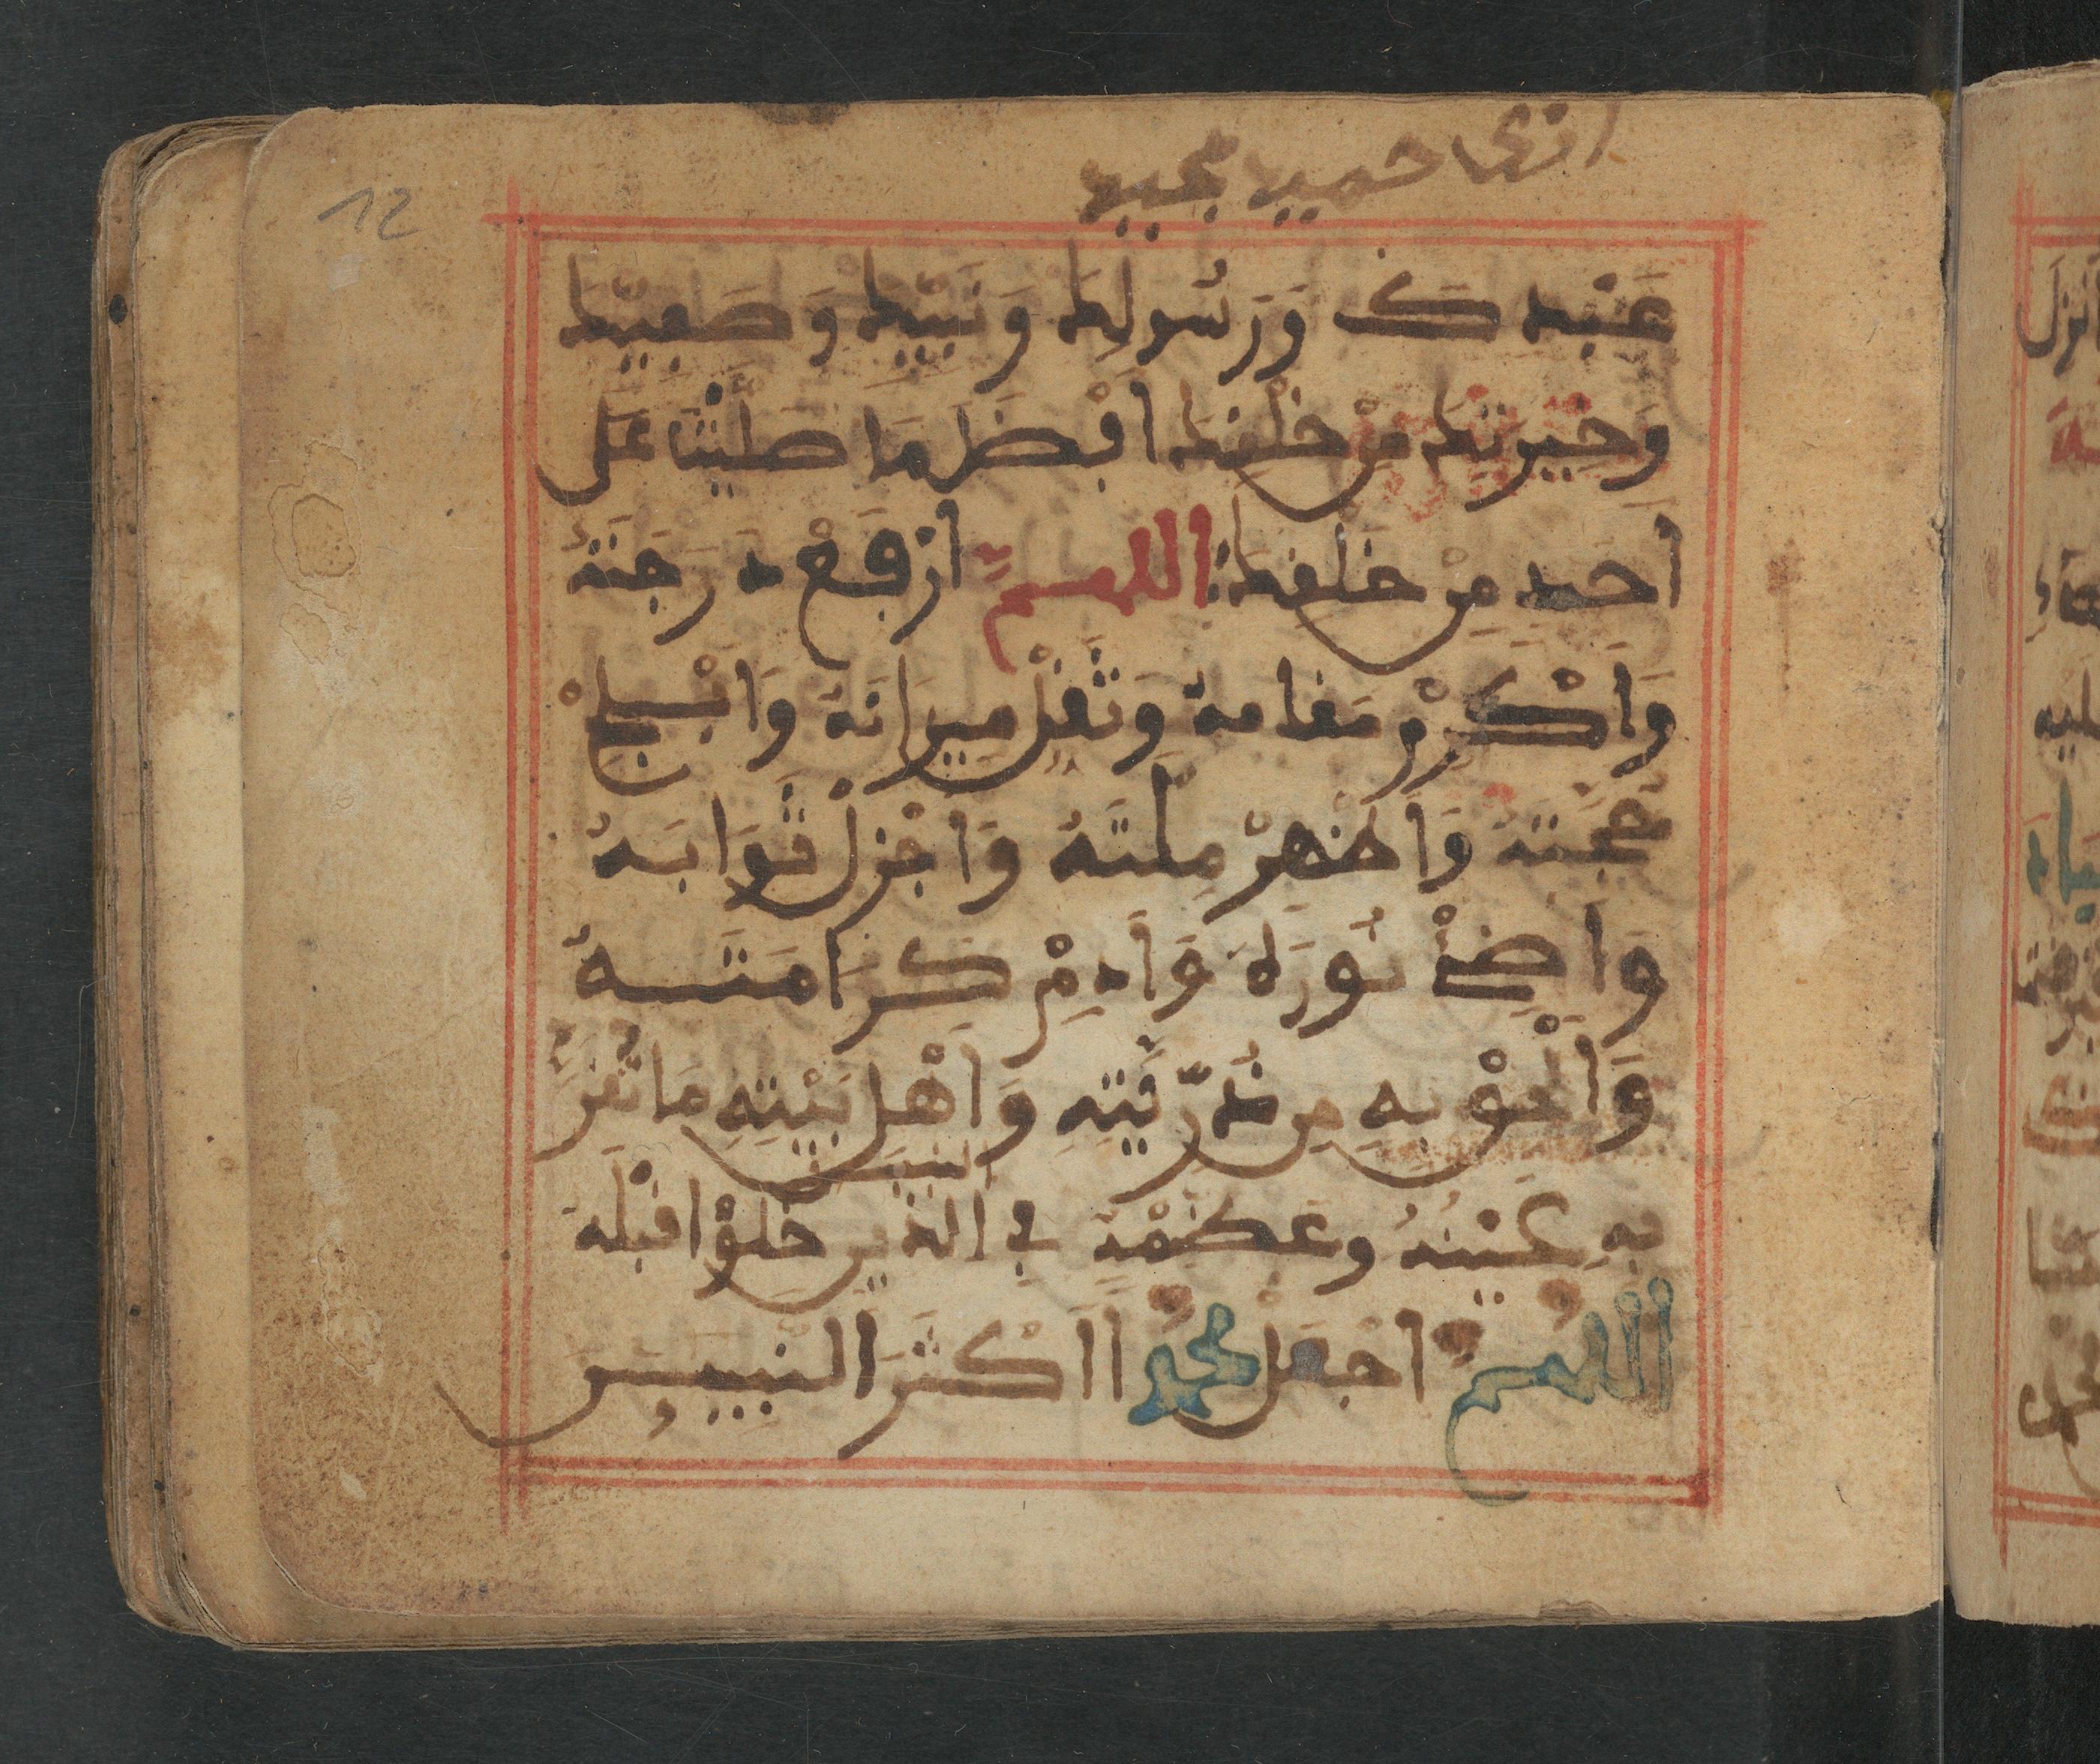 انك حميد مجيد
12
عَبْدِكَ وَرَسُولِكَ وَنَبِيِّكَ وَصَفِيِّكَ
وَخِيرَتِكَ مِنْ خَلْقِكَ اَفْضَلَ مَا صَلَّيْتَ عَلَى
اَحَدٍ مِنْ خَلْقِكَ اللهم ارْفَعْ دَرَجَتَهُ
وَاَكْرِمْ مَقَامَهُ وَثَقِّلْ مِيزَانَهُ وَاَبْلِجْ
حُجَّتَهُ وَاَظْهِرْ مِلَّتَهُ وَاَجْزِلْ ثَوَابَهُ
وَاَضِئْ نُورَهُ وَاَدِمْ كَرَامَتَهُ
وَاَلْحِقْ بِهِ مِن ذُرِّيَّتِهِ وَاَهْلِ بَيْتِهِ مَا تَقِرُّ
بِهِ عَيْنُهُ وعَظِّمْهُ فِي النبيين الذين خَلَوْا قَبْلَهُ
اللهم اجْعَلْ محمدا اَكْثَرَ النبيين